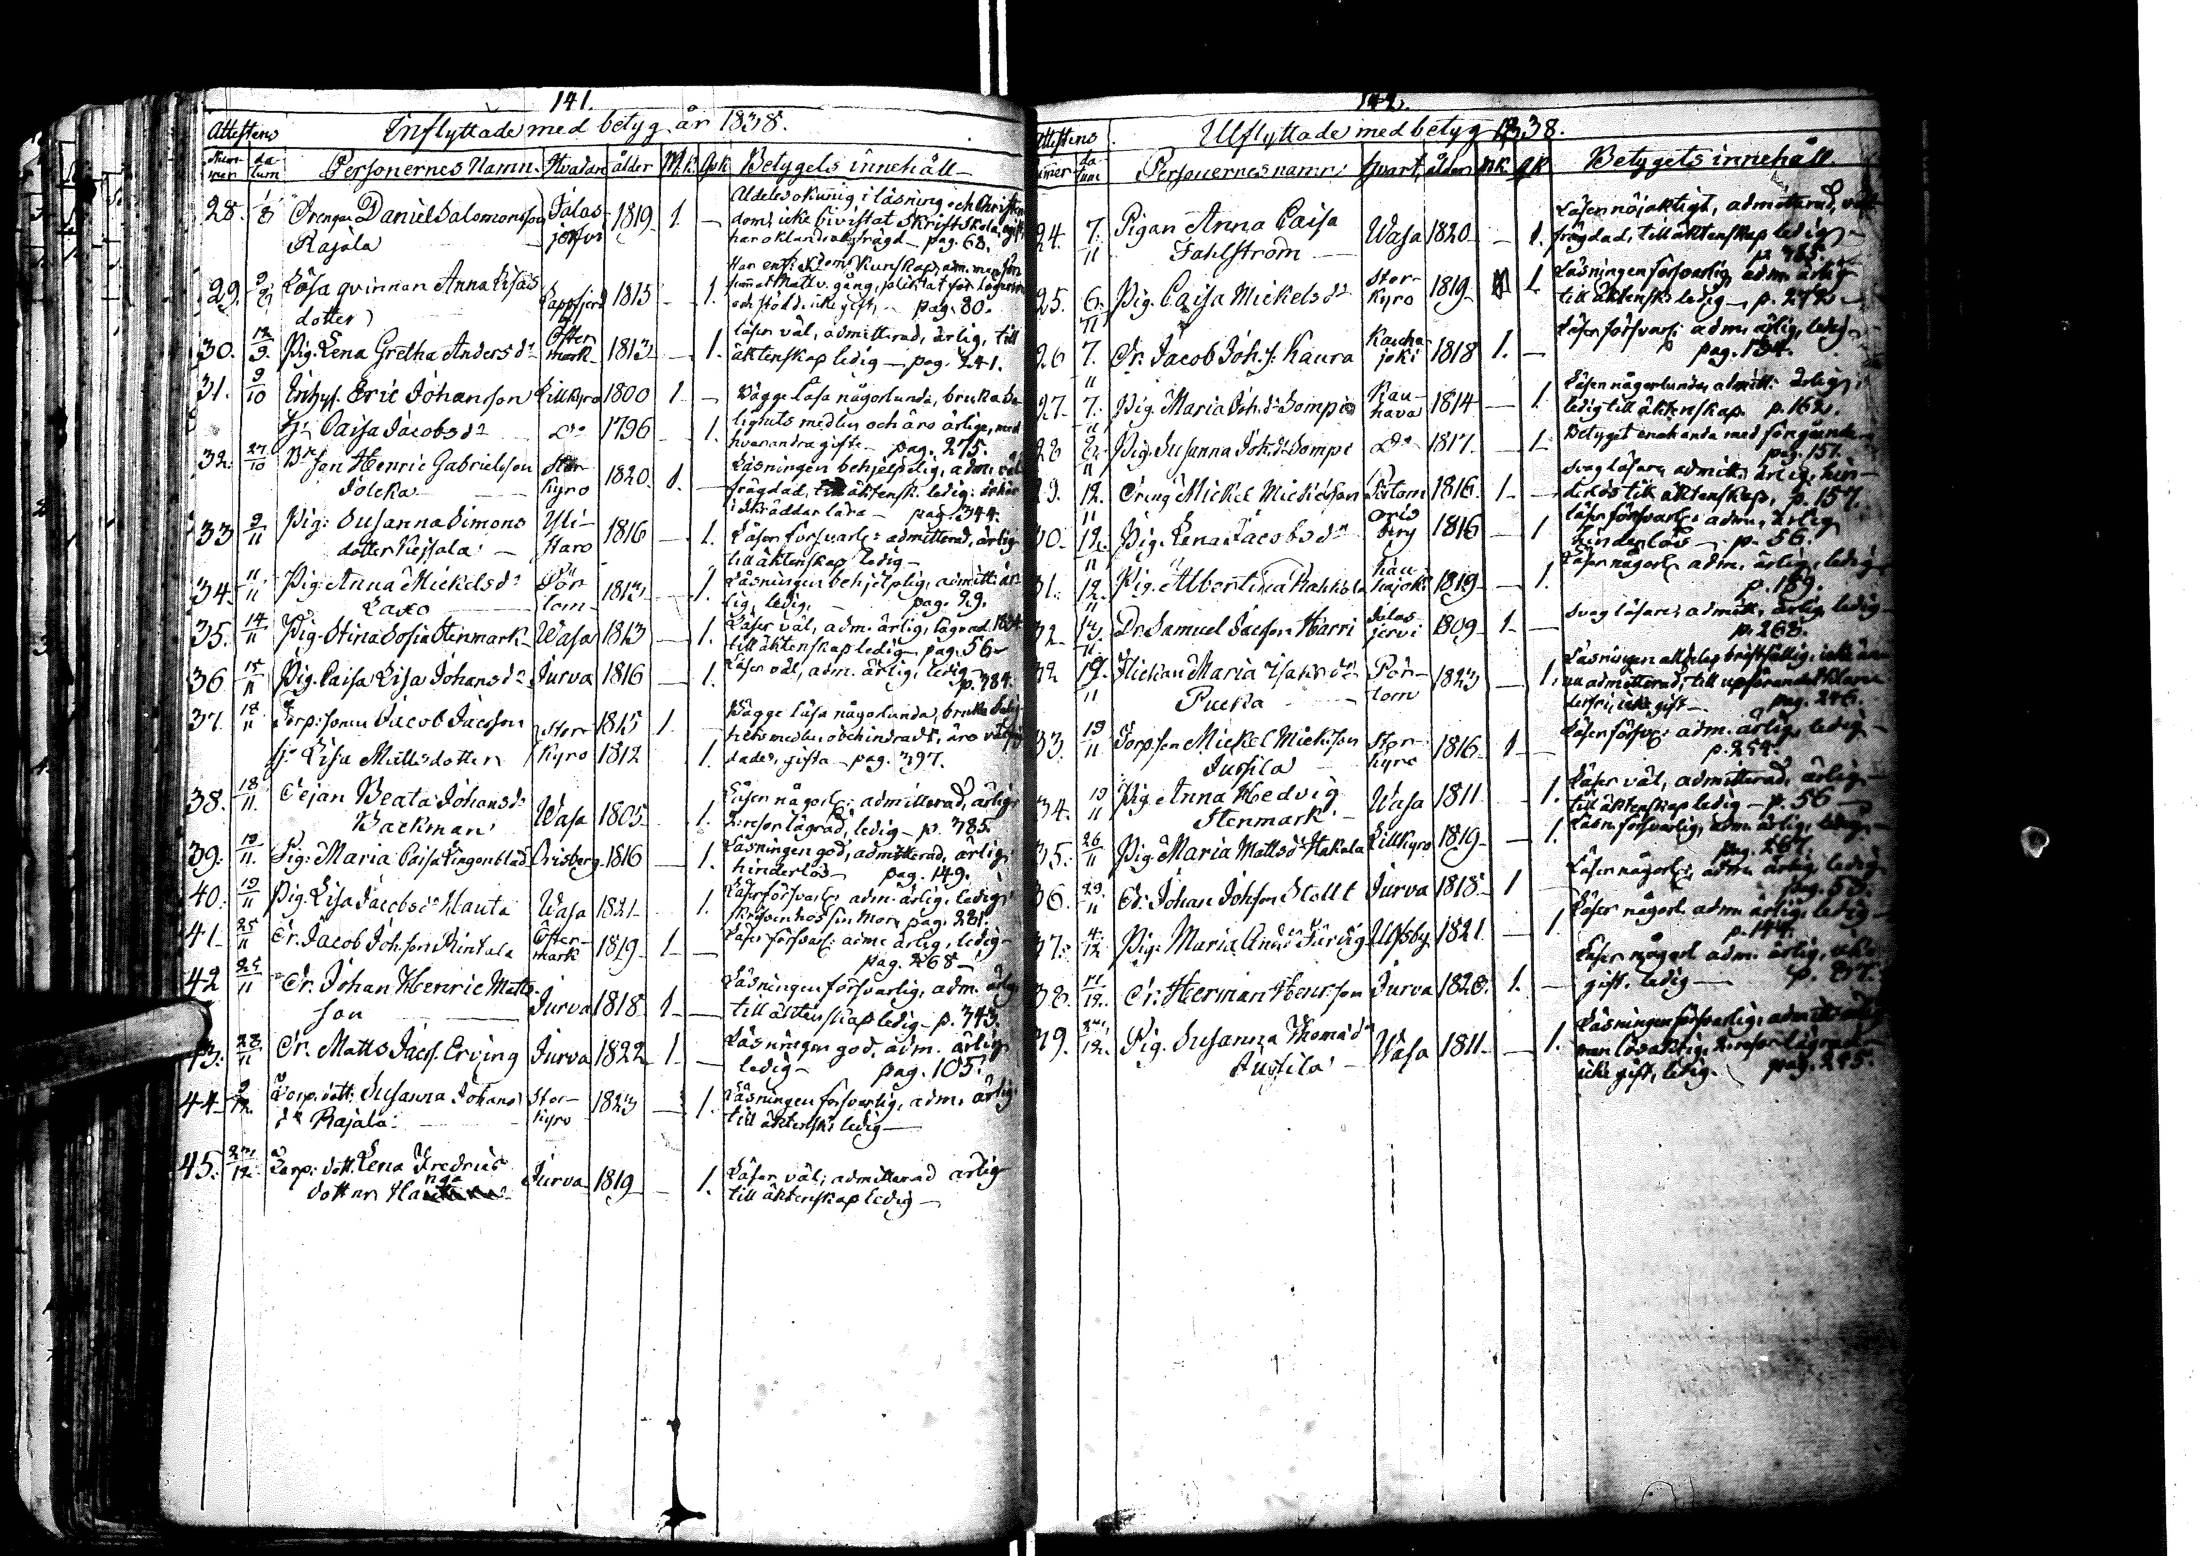 141.
Inflyttade med betyg år 1838.
Attestens
Num-mer da-tum Personernes Namn. Hvadan ålder M.k. Qvk. Betygets innehåll
28. 1/8 Drengen Daniel Salomonsson Rajala Jalasjerfvi 1819 1. — Aldeles okunnig i läsning och Christendom, icke bivistat Skriftskola pag. 68.
29. Lösa qvinnan Anna Lisas dotter Lappfjerd 1815 — 1. pag. 80.
30. 12/9 Pig. Lena Gretha Andersdr Östermark 1813 — 1. läser väl, admitterad, ärlig, till äktenskap ledig — pag. 241.
31. 9/10 Inhys. Eric Johansson Lillkyro 1800 1 — Bägge läsa någorlunda, bruka sa-
h. Caisa Jacobsdr Do 1796 — 1. lighets medlen och äro ärlige, med hvarandra gifte — pag. 275.
32. 27/10 Henric Gabrielsson Jolcka Storkyro 1820. 1. — Läsningen behjelpelig, adm. väl frägdad, till äktensk. ledig: i skräddar lära — pag. 344.
33 9/11 Pig: Susanna Simons dotter Ylistaro 1816 — 1. Läser försvarl: admitterad, ärlig till äktenskap ledig —
34. 11/11 Pig. Anna Mickelsdr Laxo Pörtom 1813 — 1. Läsningen behjelplig, admitt: ärlig, ledig. — pag. 29.
35. 14/11 Pig. Stina Sofia Stenmark Wasa 1813 — 1. Läser väl, adm. ärlig, lägrad till äktenskap ledig — pag. 56
36 15/11 Pig. Caisa Lisa Johansdr Jurva 1816 — 1. Läser väl, adm. ärlig, ledig p. 384.
37. 18/11 Torp: sonen Jacob Jacsson Storkyro 1815 1. Bägge läsa någorlunda, bruka
h. Lisa Mattsdotter 1812 1. hets medlen obehindradt, äro gifta — pag. 397.
38. 18/11. Pejan Beata Johansdr Backman Wasa 1805 1. Läser någorl: admitterad, ärlig 2: resor lägrad, ledig — p. 385.
39. 19/11. Pig: Maria Caisa Lingonblad Orisberg 1816 — 1. Läsningen god, admitterad, ärlig, hinderlös — pag. 149.
40. 19/11 Pig. Lisa Jacobsdr Hauta Wasa 1821 1. Läser försvarl. adm. ärlig, ledig, skrifven hos sin Mor, pag. 281.
41 25/11 Dr. Jacob Joh.son Rintala Östermark 1819 1 — Läser försvarl: adm: ärlig, ledig — pag. 268 —
42 25/11 Dr. Johan Henric Mattsson Jurva 1818 1 — Läsningen försvarlig, adm. ärlig till äktenskap ledig — p. 343.
43. 28/11 Dr. Matts Jacs. Erving Jurva 1822 1 — Läsningen god, adm. ärlig ledig — pag. 105.
44 9/12. Torp. dott: Susanna Johansdr Rajala Storkyro 1823 — 1. Läsningen försvarlig, adm. ärlig. till äktensk: ledig —
45. Torp: dott. Lena Fredrics dotter Jurva 1819 — 1. Läser väl; admitterad ärlig till äktenskap ledig —
142.
Utflyttade med betyg 1838.
Attestens
mer da-tum Personernes namn. hvart, ålder m.k. q.k. Betygets innehåll.
24. 7./11 Pigan Anna Caisa Fahlström Wasa 1820 — 1. Läser nöjaktigt, admitterad, väl frägdad, till äktenskap ledig —
25. 6./11 Pig. Caisa Mickelsdr Storkyro 1819 1. Läsningen försvarlig, adm. ärlig till äktensk: ledig —
26 7./11 Dr. Jacob Joh.s. Kaura Kauhajoki 1818 1. — Läser försvarl: adm: ärlig, ledig — pag. 134.
27. 7./11 Pig. Maria Joh.dr Sompi Kauhava 1814 — 1. Läser någorlunda, admitt: ärlig, ledig till äktenskap. p. 162.
28 Pig. Susanna Joh.dr Sompi Do 1817. — 1. Betyget enahanda med föregående pag. 157.
29. 12./11 Dreng Mickel Mickelsson Pörtom 1816. 1 — Svag läsare, admitt: ärlig, hinderlös till äktenskap, p. 157.
30. 12./11 Pig. Lena Jacobsdr Orisberg 1816 — 1 läser försvarl: adm., ärlig, hinderlös — p. 56.
31. 12./11 Pig. Albertina Kauhajoki 1819 — 1. Läser någorl. adm. ärlig, ledig — p. 189.
32 13./11 Dr Samuel Jacsson Harri Jalasjervi 1809 1 — Svag läsare, admitt. ärlig, ledig — p. 268.
32 19./11 Flickan Maria Isaksdr Pucka Pörtom 1823 — 1. pag. 246.
33. 19/11 Torp.son Mickel Mickelsson Jussila Storkyro 1816 1 — Läser försv: adm. ärlig, ledig — p. 254.
34. 19/11 Pig. Anna Hedvig Stenmark Wasa 1811 — 1. Läser väl, admitterad, ärlig, till äktenskap ledig — p. 56 —
35. 26/11 Pig. Maria Mattsdr Hakala Lillkyro 1819 — 1. Läsn. försvarlig, adm. ärlig, ledig, — pag. 267.
36. 29/11 Dr. Johan Johsson Stollt Jurva 1818 1 — Läser någorl: adm. ärlig, ledig pag. 53.
37. 4./12 Pig: Maria Ylfsby 1821. — 1. Läser någorl. adm. ärlig, ledig —
38. Dr. Herman Henr.son Jurva 1820. 1. — Läser någorl adm. ärlig, icke gift, ledig —
39. Pig. Susanna Thomasdr Jussila Wasa 1811 — 1. Läsningen försvarlig, icke gift, ledig. pag. 245.